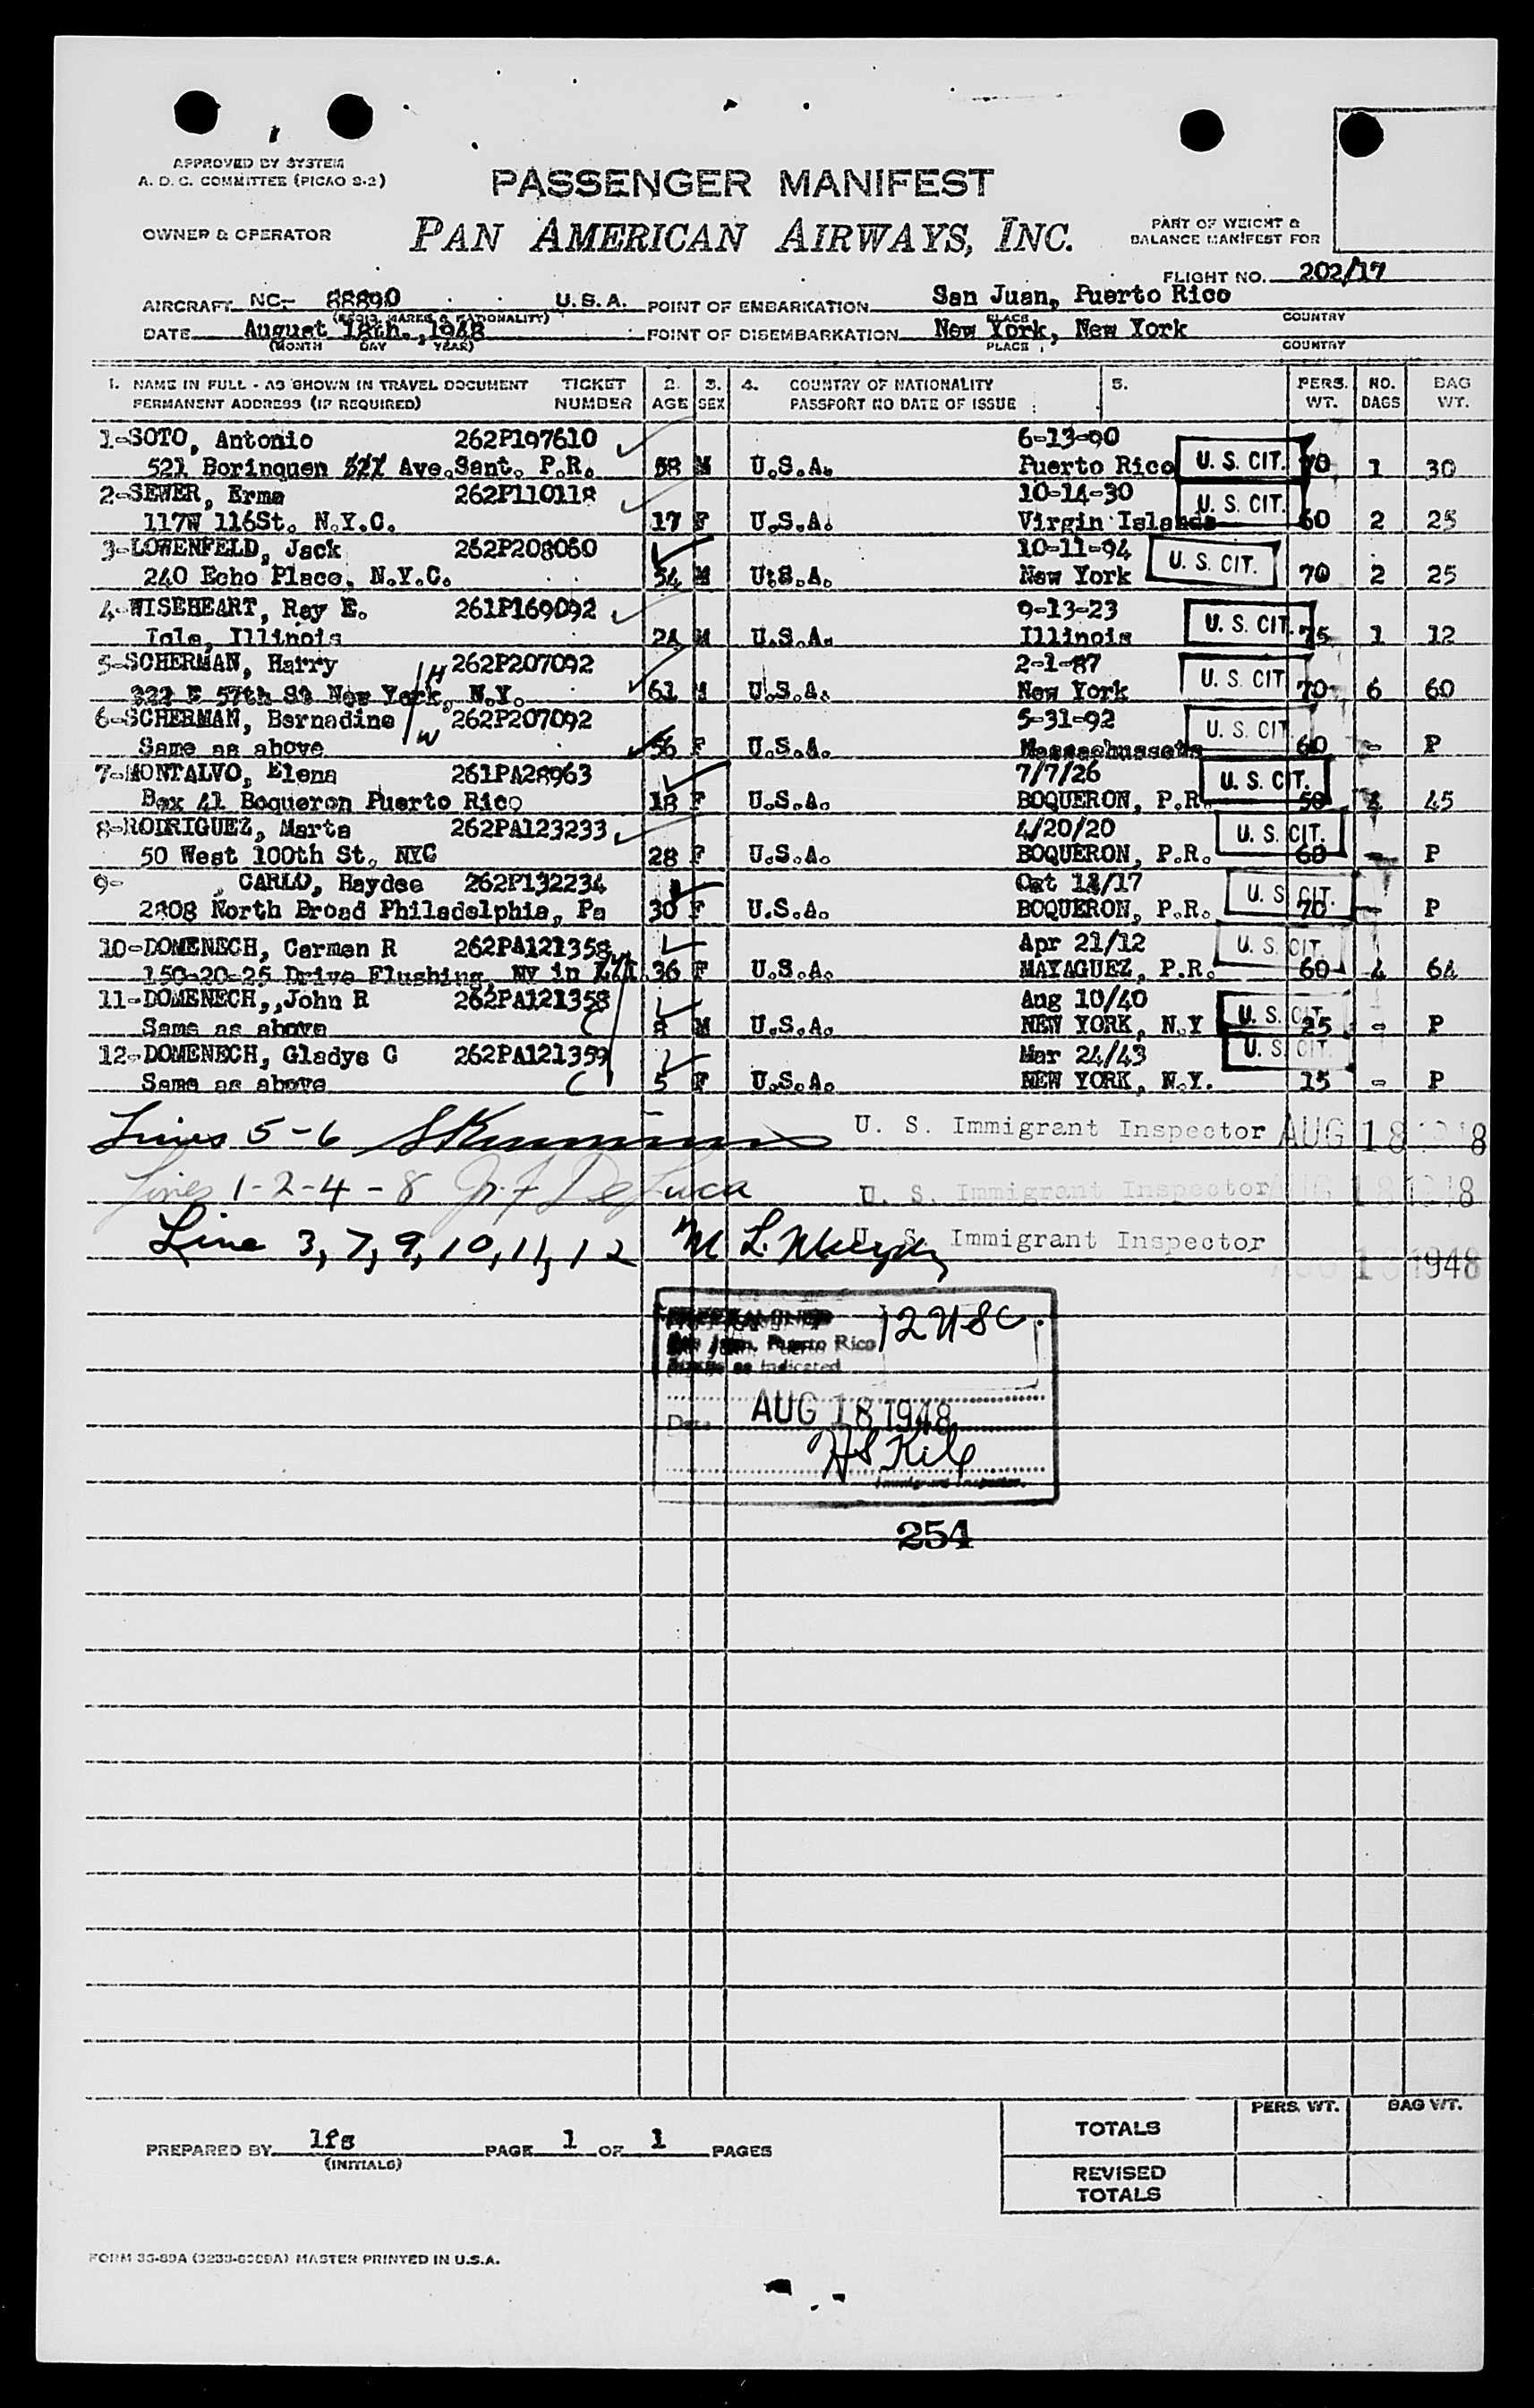 APPROVED BY SYSTEM
A. D. C. COMMITTEE (PICAO S-2)
PASSENGER MANIFEST
OWNER & OPERATOR
PAN AMERICAN AIRWAYS, INC.
PART OF WEIGHT &
BALANCE MANIFEST FOR
FLIGHT NO. 202/17
AIRCRAFT NC- 88890 U.S.A. POINT OF EMBARKATION San Juan, Puerto Rico
(REGIS. MARKS & NATIONALITY) PLACE COUNTRY
DATE August 18th.,1948 POINT OF DISEMBARKATION New York, New York
(MONTH DAY YEAR) PLACE COUNTRY
1. NAME IN FULL - AS SHOWN IN TRAVEL DOCUMENT TICKET 2. 3. 4. COUNTRY OF NATIONALITY 5. PERS. NO. BAG
PERMANENT ADDRESS (IF REQUIRED) NUMBER AGE SEX PASSPORT NO DATE OF ISSUE WT. BAGS WT.
1-SOTO, Antonio 262P197610 6-13-90
521 Borinquen Ave.Sant. P.R. 58 M U.S.A. Puerto Rico U. S. CIT. 70 1 30
2-SEWER, Erma 262P110118 10-14-30
117W 116St. N.Y.C. 17 F U.S.A. Virgin Islands U. S. CIT. 60 2 25
3-LOWENFELD, Jack 262P208060 10-11-94
240 Echo Place, N.Y.C. 54 M U.S.A. New York U. S. CIT. 70 2 25
4-WISEHEART, Ray E. 261P169092 9-13-23
Illinois 24 M U.S.A. Illinois U. S. CIT. 75 1 12
5-SCHERMAN, Harry H 262P207092 2-1-87
322 E 57th St New York, N.Y. 61 M U.S.A. New York U. S. CIT 70 6 60
6-SCHERMAN, Bernadine W 262P207092 5-31-92
Same as above 56 F U.S.A. Massachussets U. S. CIT 60 - P
7-MONTALVO, Elena 261PA28963 7/7/26
Box 41 Boqueron Puerto Rico 18 F U.S.A. BOQUERON, P.R. U. S. CIT. 50 4 45
8-RODRIGUEZ, Marta 262PA123233 4/20/20
50 West 100th St. NYC 28 F U.S.A. BOQUERON, P.R. U. S. CIT. 60 - P
9- , CARLO, Haydee 262P132234 Oct 12/17
2808 North Broad Philadelphia, Pa 30 F U.S.A. BOQUERON, P.R. U. S. CIT. 70 - P
10-DOMENECH, Carmen R 262PA121358 Apr 21/12
150-20-25 Drive Flushing, NY 36 F U.S.A. MAYAGUEZ, P.R. U. S. CIT. 60 4 64
11-DOMENECH,,John R 262PA121358 Aug 10/40
Same as above 8 M U.S.A. NEW YORK, N.Y U. S. CIT. 25 - P
12-DOMENECH, Gladys G 262PA121359 Mar 24/43
Same as above 5 F U.S.A. NEW YORK, N.Y. U. S. CIT. 15 - P
Lines 5-6 U. S. Immigrant Inspector AUG 18 1948
Lines 1-2-4-8 De Luca U. S. Immigrant Inspector AUG 18 1948
Line 3, 7, 9, 10, 11, 12 M L. U. S. Immigrant Inspector AUG 18 1948
12 USC.
San Juan, Puerto Rico
Status as indicated
Date AUG 18 1948
Immigrant Inspector
254
PERS. WT. BAG WT.
TOTALS
PREPARED BY lfs PAGE 1 OF 1 PAGES
(INITIALS)
REVISED
TOTALS
FORM MASTER PRINTED IN U.S.A.